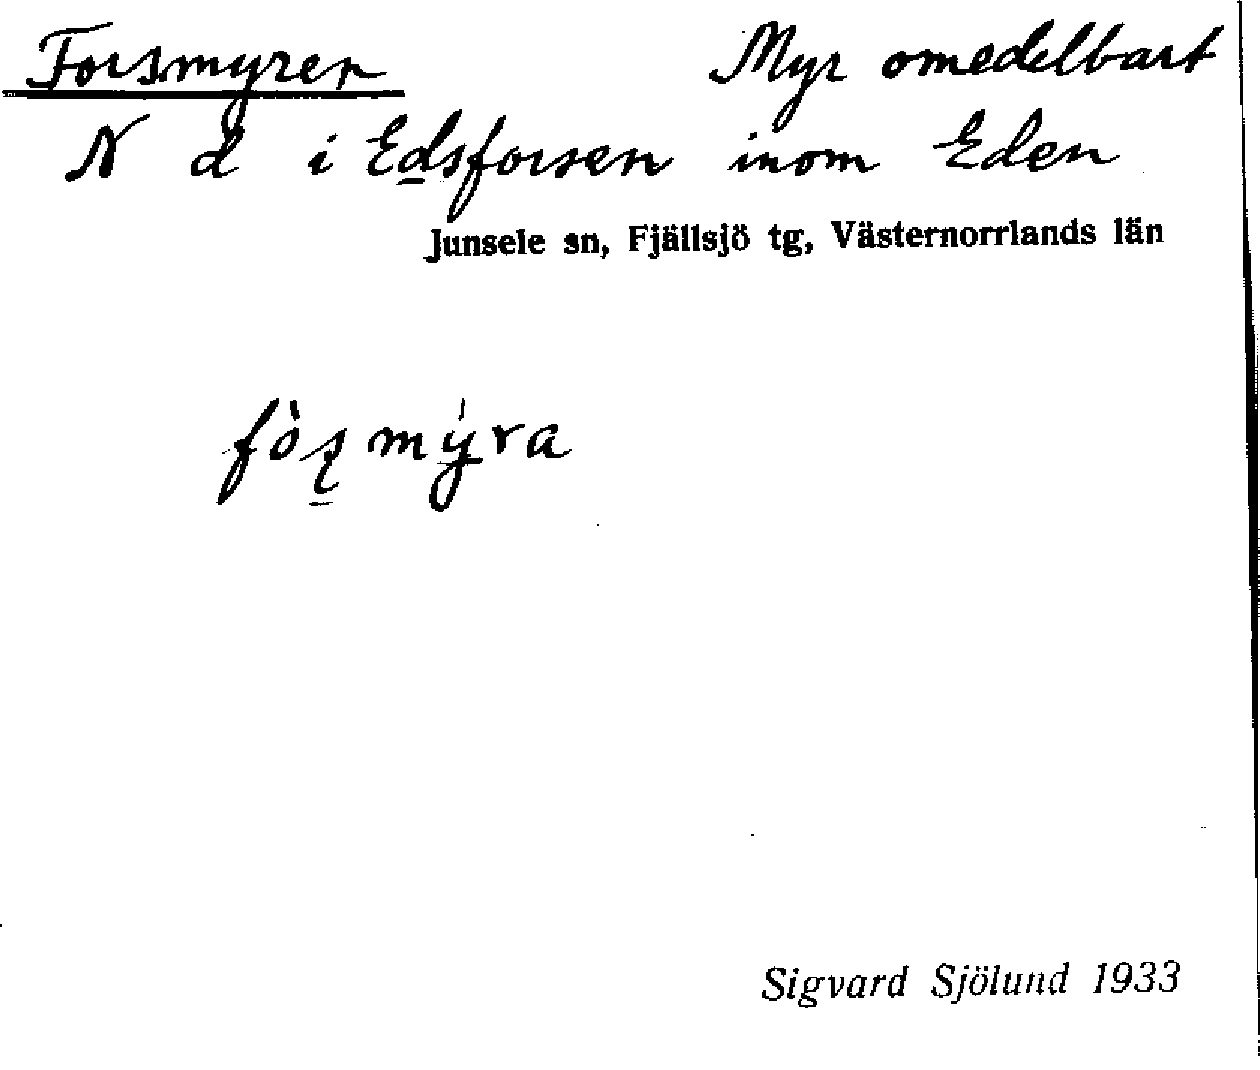 Forsmyren Myr omedelbart
N d i Edsforsen inom Eden
Junsele sn, Fjällsjö tg, Västernorrlands län
fòʂmýra
Sigvard Sjölund 1933